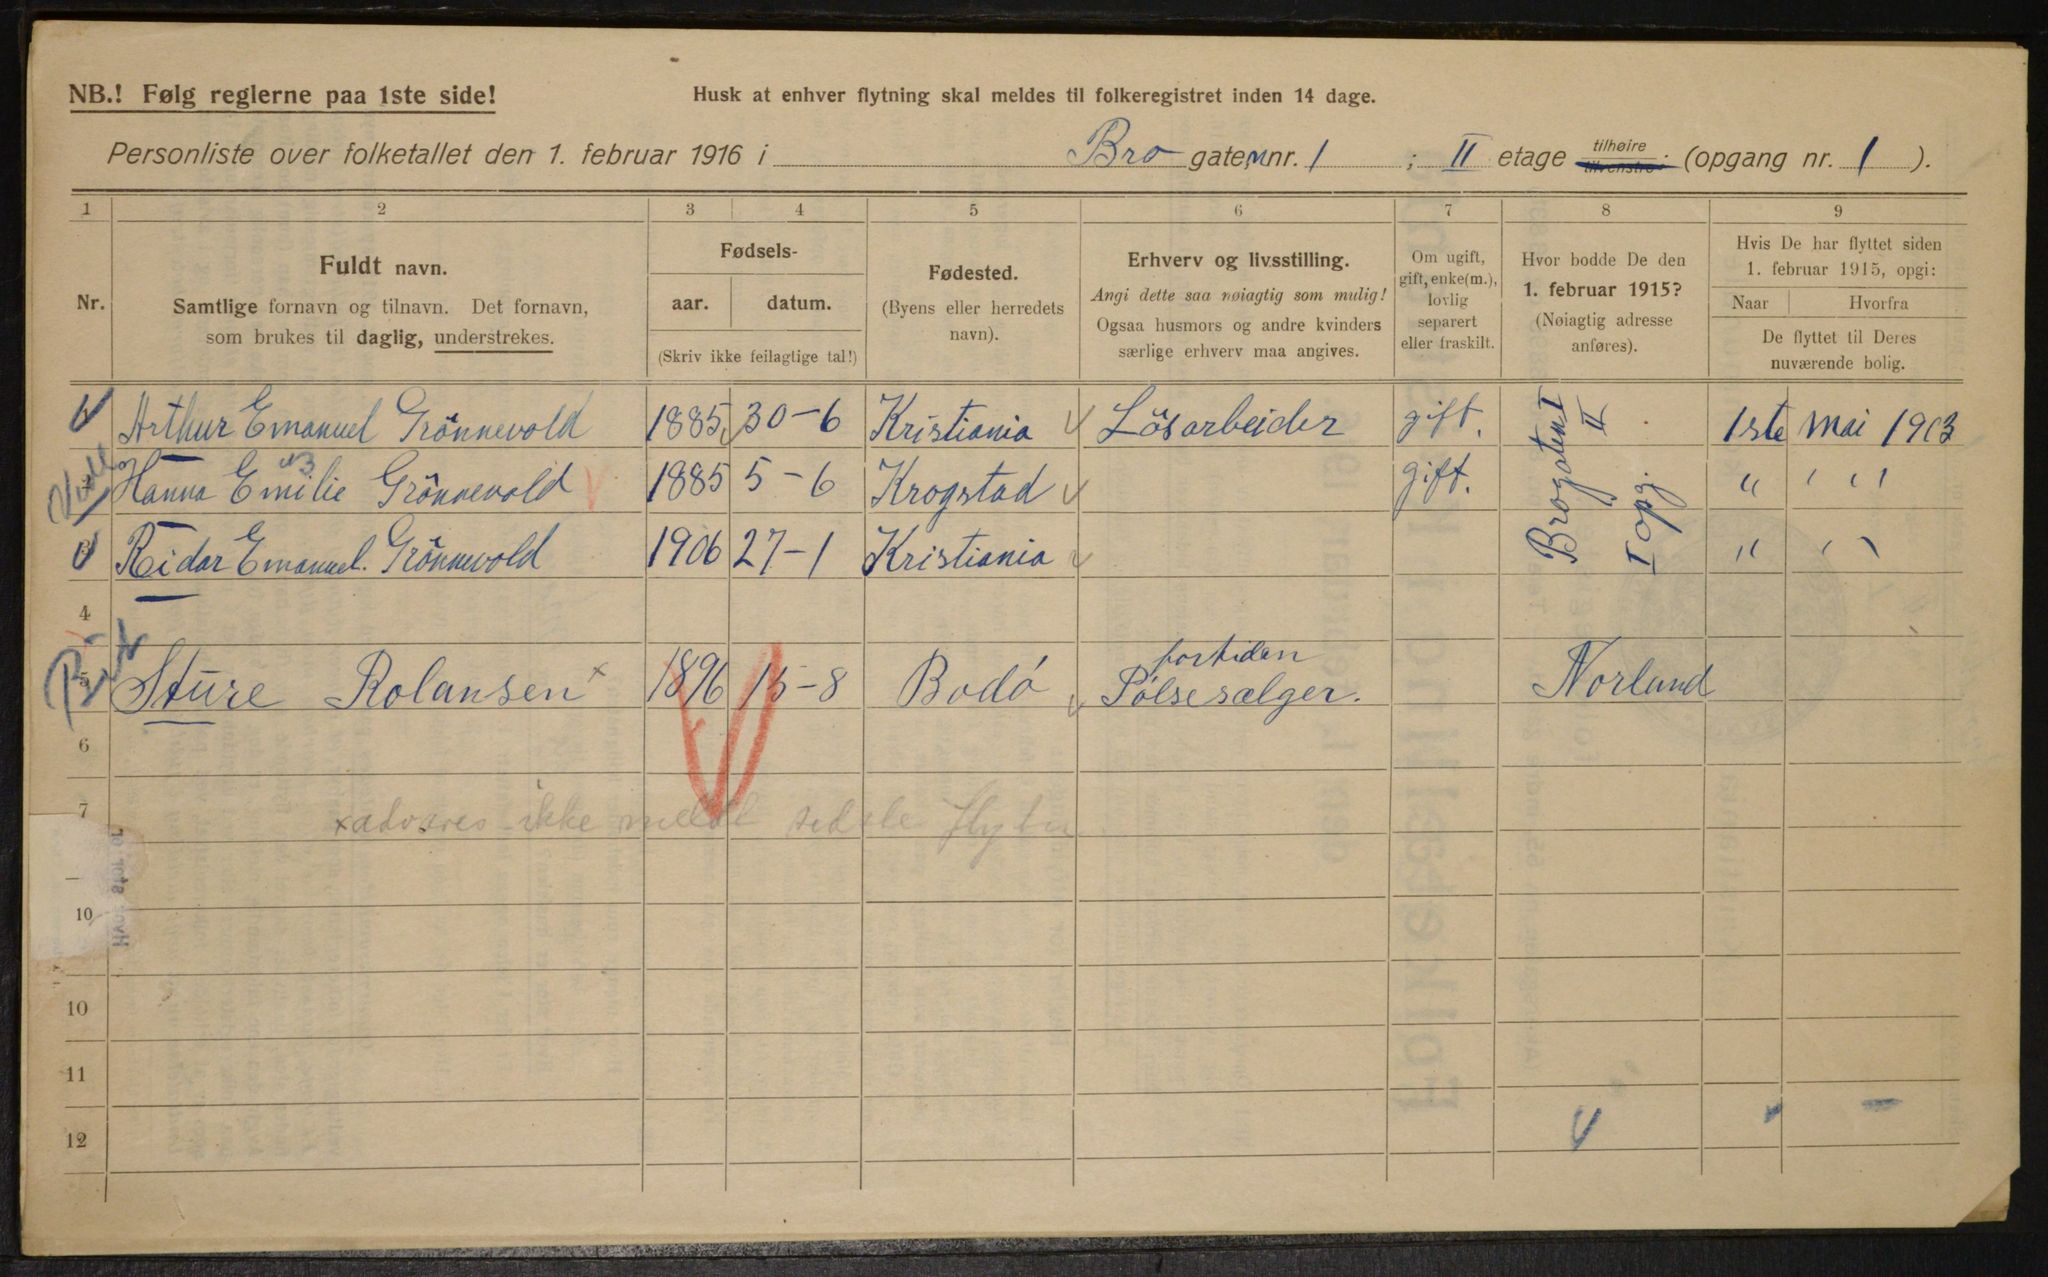 NB.! Følg reglerne paa 1ste side!
Husk at enhver flytning skal meldes til folkeregistret inden 14 dage.
Personliste over folketallet den 1. februar 1916 i Bro gaten nr. 1 ; II etage tilhøire tilvenstre (opgang nr. 1 ).
1 2 3 4 5 6 7 8 9
Nr.
Fuldt navn.
Samtlige fornavn og tilnavn. Det fornavn,
som brukes til daglig, understrekes.
Fødsels-
aar. datum.
(Skriv ikke feilagtige tal!)
Fødested.
(Byens eller herredets
navn).
Erhverv og livsstilling.
Angi dette saa nøiagtig som mulig!
Ogsaa husmors og andre kvinders
særlige erhverv maa angives.
Om ugift,
gift, enke(m.),
lovlig
separert
eller fraskilt.
Hvor bodde De den
1. februar 1915?
(Nøiagtig adresse
anføres).
Hvis De har flyttet siden
1. februar 1915, opgi:
Naar Hvorfra
De flyttet til Deres
nuværende bolig.
Arthur Emanuel Grönnevold 1885 30-6 Kristiania Lösarbeider gift. Brogaten 1 II I opg. 1ste mai 1913
Hanna Emilie Grönnevold 1885 5-6 Krogstad gift. " " " "
Reidar Emanuel. Grönnevold 1906 27-1 Kristiania " " "
4
5 Sture Rolansen x 1896 15-8 Bodó fortiden Pólsesælger. Norland
6
7
x ikke meldt
10
10
11
12